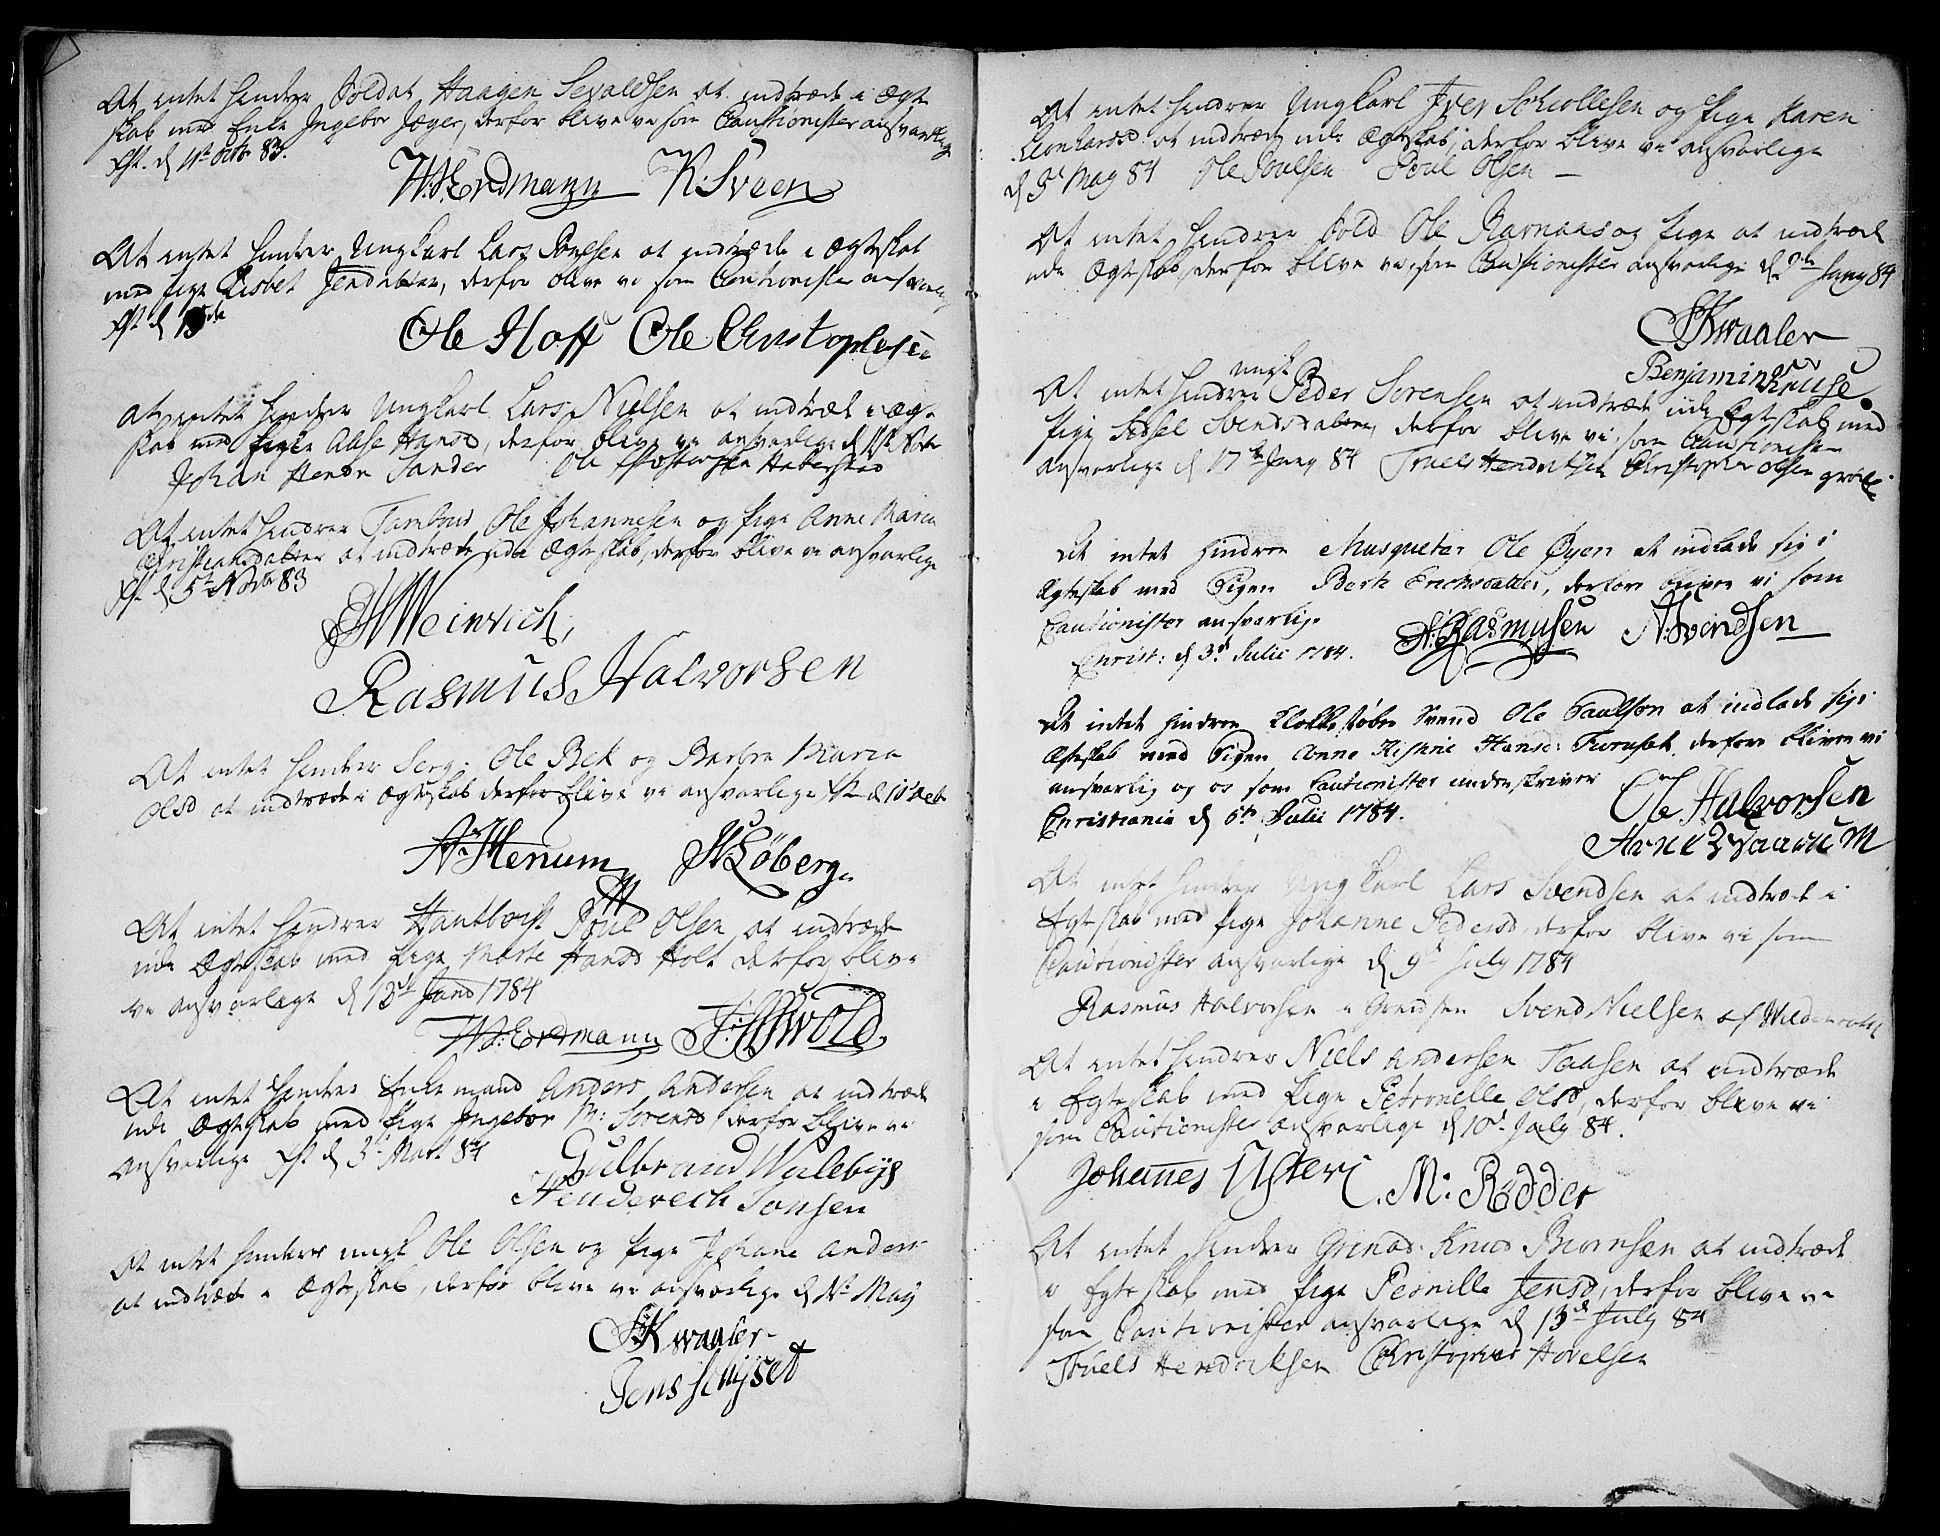 At intet hindrer Soldat Haagen Sevaldsen at indtræde i Ægte
skab med Enke Ingebor Jæger, derfor blive vi som Cautionister ansvarlig
Xst. d 11t Octr 83.
W. Erdmann K. Sveen
At intet hindrer Ungkarl Lars Poulsen at indtræde i Ægteskab
med Pige Lisbet Jensdatter, derfor blive vi som Cautionister ansvarlig
Xst d 15de
Ole Hoff Ole Christophersen
At intet hindrer Ungkarl Lars Nielsen at indtræde i Ægte
skab med Pigen Aase Hansd, derfor blive vi ansvarlige d
Johan Hendr Sander Ole Haberstad
At intet hindrer Tambour Ole Johannesen og Pige Anne Maria
Christiansdatter at indtræde udi Ægteskab, derfor blive vi ansvarlige
Xst d 5t Novr 83
H Weinrich,
Rasmus Halvorsen
At intet hindrer Serg: Ole Bek og Barbra Maria
Olsd at indtræde i Ægteskab derfor blive vi ansvarlige Xst d 10 Decbr
A. Henum J. Løberg.
At intet hindrer Hautboist Poul Olsen at indtræde
udi Ægteskab med Pige Marte Hansd Holt derfor blive
vi ansvarlige d 13de Janv 1784
W. Erdmann J. Awold.
At intet hindrer Enke mand Anders Andersen at indtræde
udi Ægteskab med Pige Ingebor M: Sørensd derfor blive vi
ansvarlige Xst d 3t Mart 84
Gulbrand Walebye
Hendrech Jonsen
At intet hindrer ungk Ole Olsen og Pige Johane Anders
at indtræde i Ægteskab, derfor blive vi ansvarlige d 1st May
S Kwaaler
Jens
At intet hindrer Ungkarl Iver Schiøllesen og Pige Karen
Leonhardsd at indtræde udi Ægteskab, derfor blive vi ansvarlige
d 3t May 84 Ole Poulsen Poul Olsen
At intet hindrer Sold Ole Ravnaas og Pige at indtræde
udi Ægteskab, derfor blive vi som Cautionister ansvarlige d 2den Juny 84
S Kwaaler
Benjamin Kruse
ungk
At intet hindrer Peder Sørensen at indtræde udi Egteskab med
Pige Sidsel Svendsdatter, derfor blive vi som Cautionister
ansvarlige d 17de Juny 84 Truels Hendriksen Christopher Olsen
At intet hindrer Musqueter Ole Øyen at indlade sig i
Ægteskab med Pigen Berte Erichsdatter, derfore bliver vi som
Cautionister ansvarlige
Christ: d 3d Julii 1784. A. Rasmusen A. Svendsen
At intet hindrer Klokkestøber Svend Ole Paulson at indlade sig i
Ægteskab med Pigen Anne Hansd: derfore bliver vi
ansvarlig og os som Cautionister underskriver
Christiania d 6te Julii 1784.
Ole Halvorsen
Arne
At intet hindrer Ungkarl Lars Svendsen at indtræde i
Egteskab med Pige Johanne Pedersd derfor blive vi som
Cautionister ansvarlige d 9de July 1784
Rasmus Halvorsen i Grendsen Svend Nielsen af
At intet hindrer Niels Andersen Taasen at indtræde
i Egteskab med Pige Petronelle Olsd, derfor blive vi
som Cautionister ansvarlige d 10de July 84.
Johannes C. M: Rødder
At intet hindrer Grenad. Knud Biørnsen at indtræde
i Egteskab med Pige Pernille Jensd, derfor blive vi
som Cautionister ansvarlige d 13de July 84
Truels Hendriksen Christopher Hovelsen